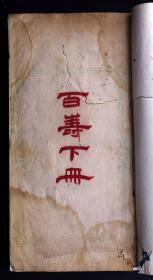 百壽下冊